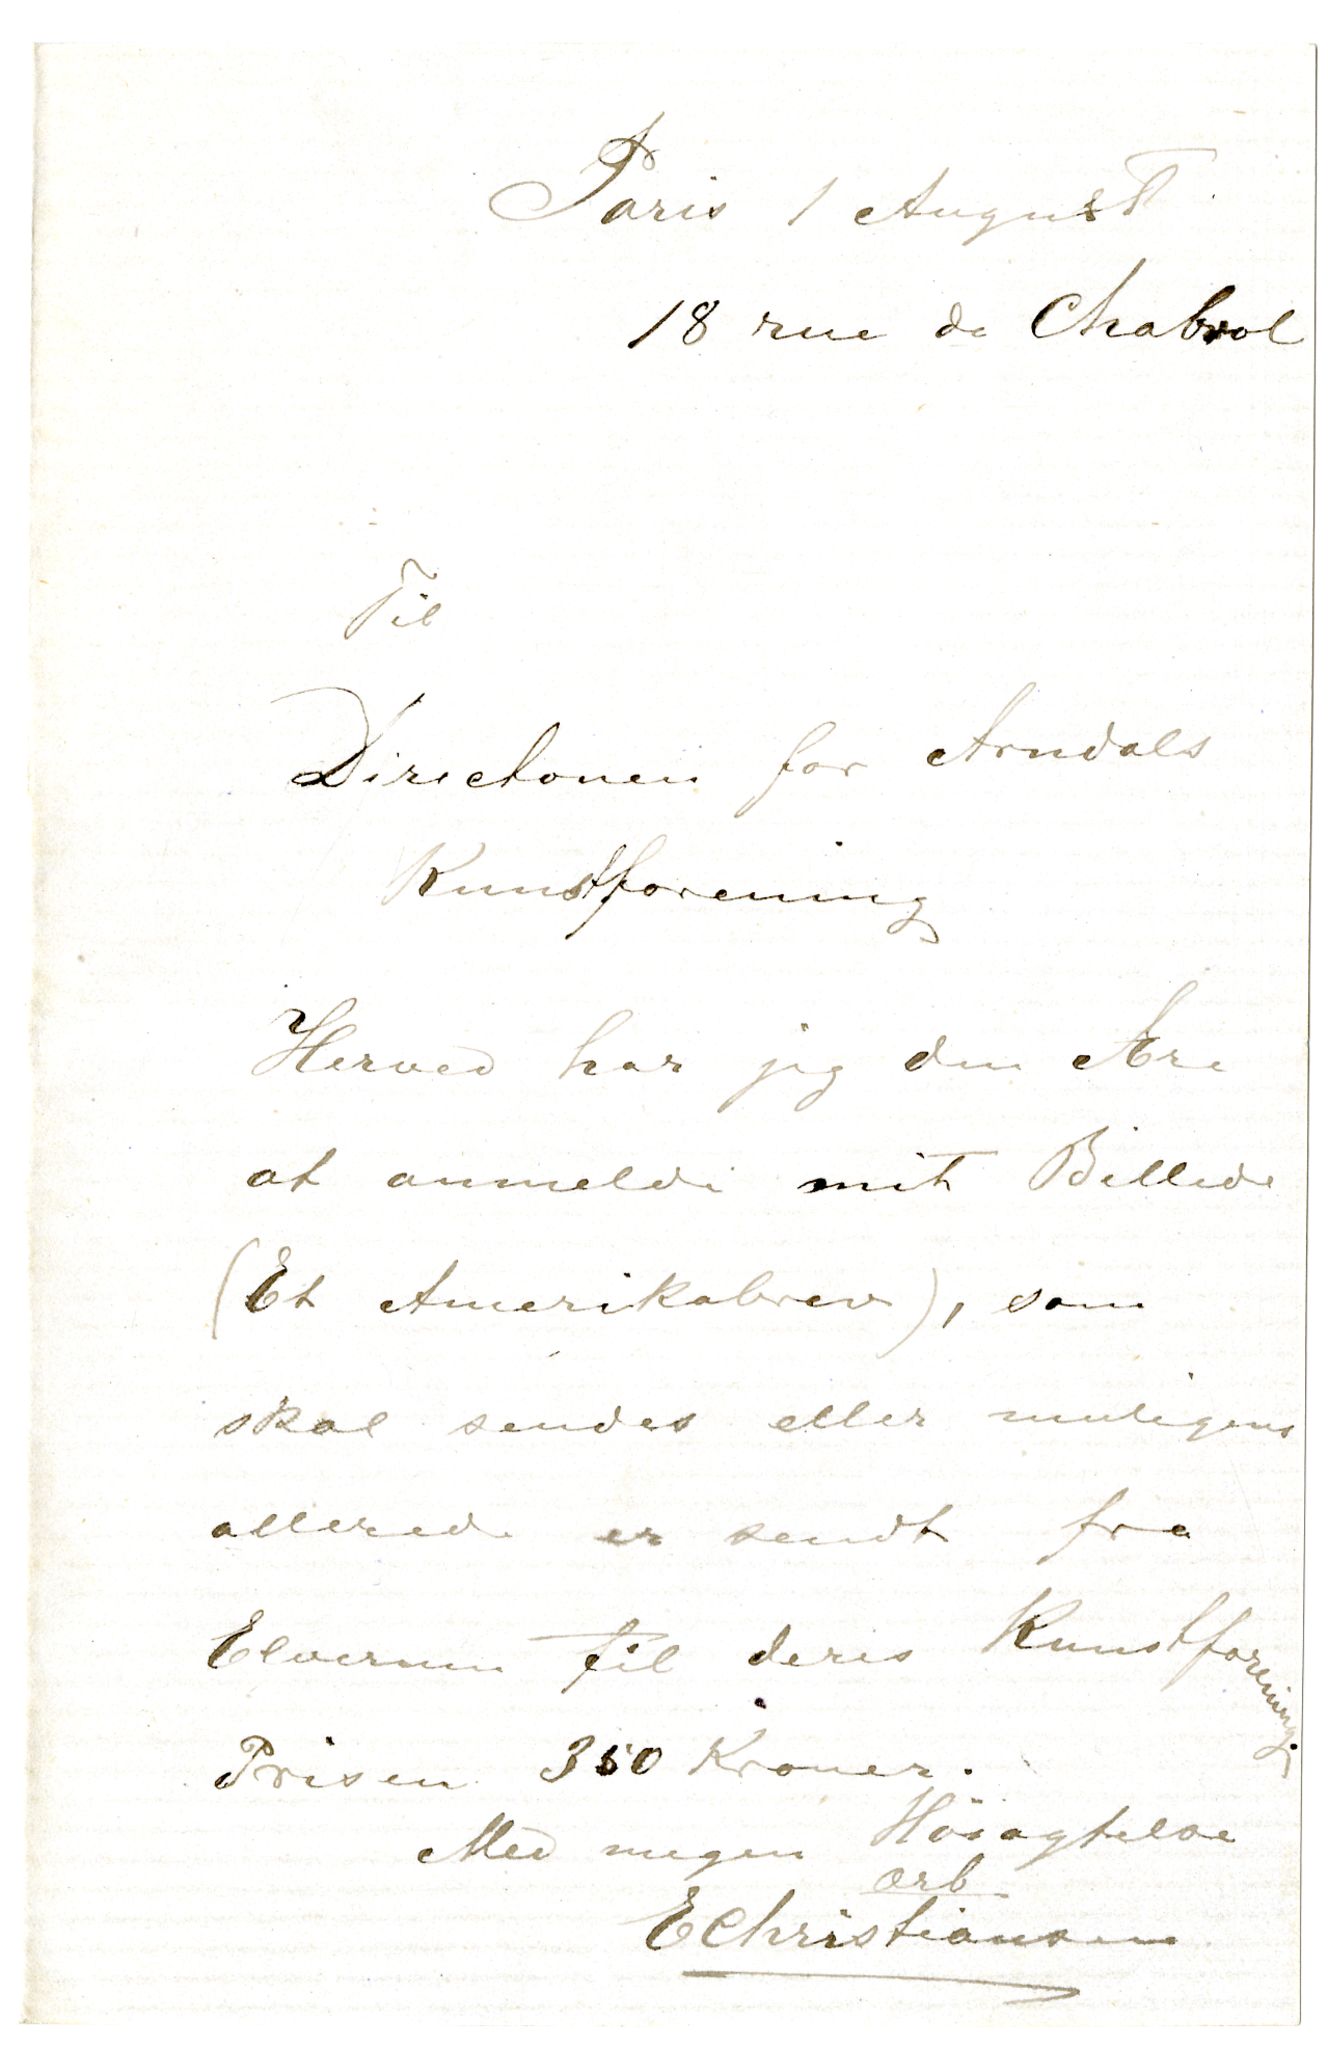 Paris 1 August.
18 rue de Chabrol
Til
Directionen for Arndals
Kunstforening
Herved har jeg den Ære
at anmelde mit Billede
(Et Amerikabrev), som
skal sendes eller muligens
allerede er sendt fra
Elverum til deres Kunstforening.
Prisen 350 Kroner.
Med megen Höiagtelse
ærb
EChristiansen